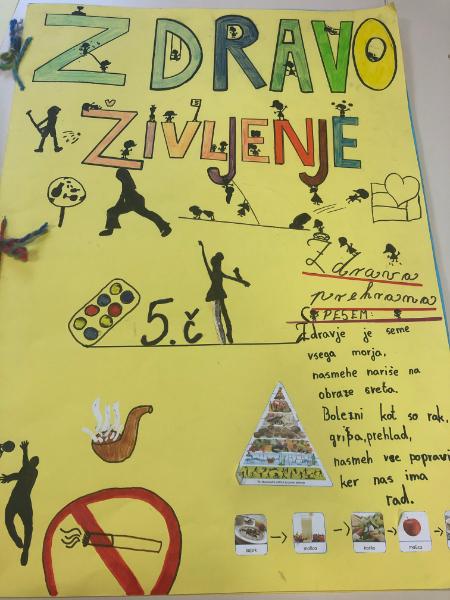 ZDRAVO
ŽIVLJENJE
5. č
Zdrava
prehrana
PESEM:
Zdravje je seme
vsega morja,
nasmehe nariše na
obraze sveta.
Bolezni kot so rak,
gripa, prehlad,
nasmeh vse popravi
ker nas ima
rad.
malica
kosilo
malica